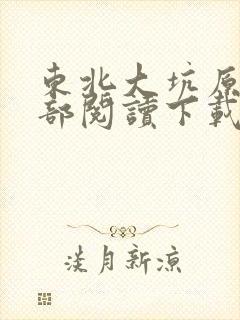 東北大坑原
部閱讀下載
淡月新涼